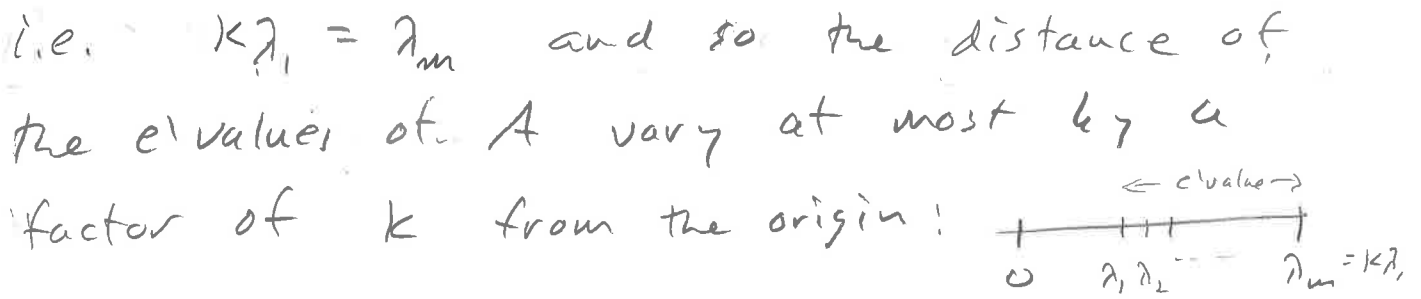 i.e. kλ₁ = λₘ and so the distance of
the e'values of A vary at most by a
factor of k from the origin!
← e'value →
0 λ₁ λ₂ ... λₘ = kλ₁